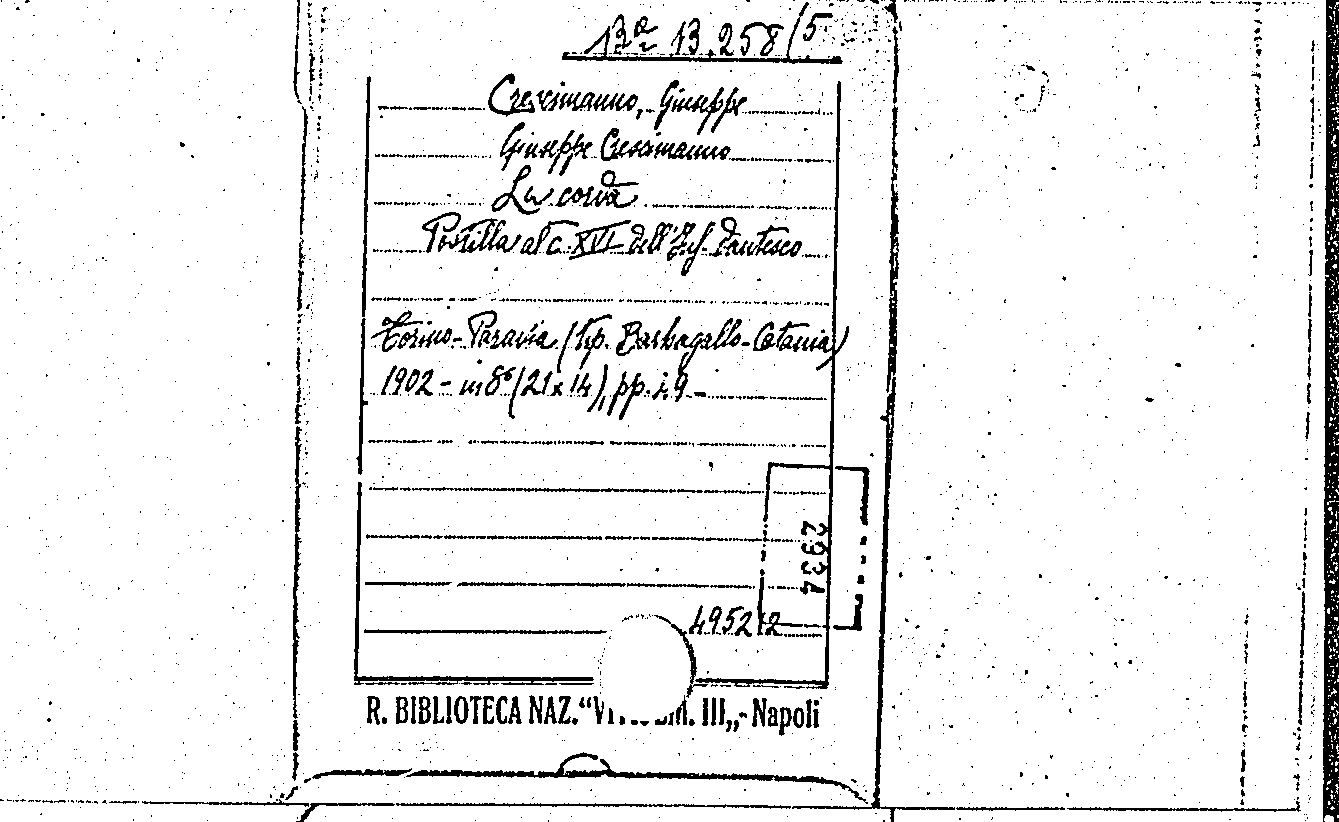 Bª 13.258/5
Crescimanno, Giuseppe
Giuseppe Crescimanno
La corda
Postilla al c. XVI dell'Inf. dantesco
Torino-Paravia (tip. Barbagallo-Catania)
1902 - in 8º (21 x 14), pp. 19 -
2934
495212
R. BIBLIOTECA NAZ. III„-Napoli